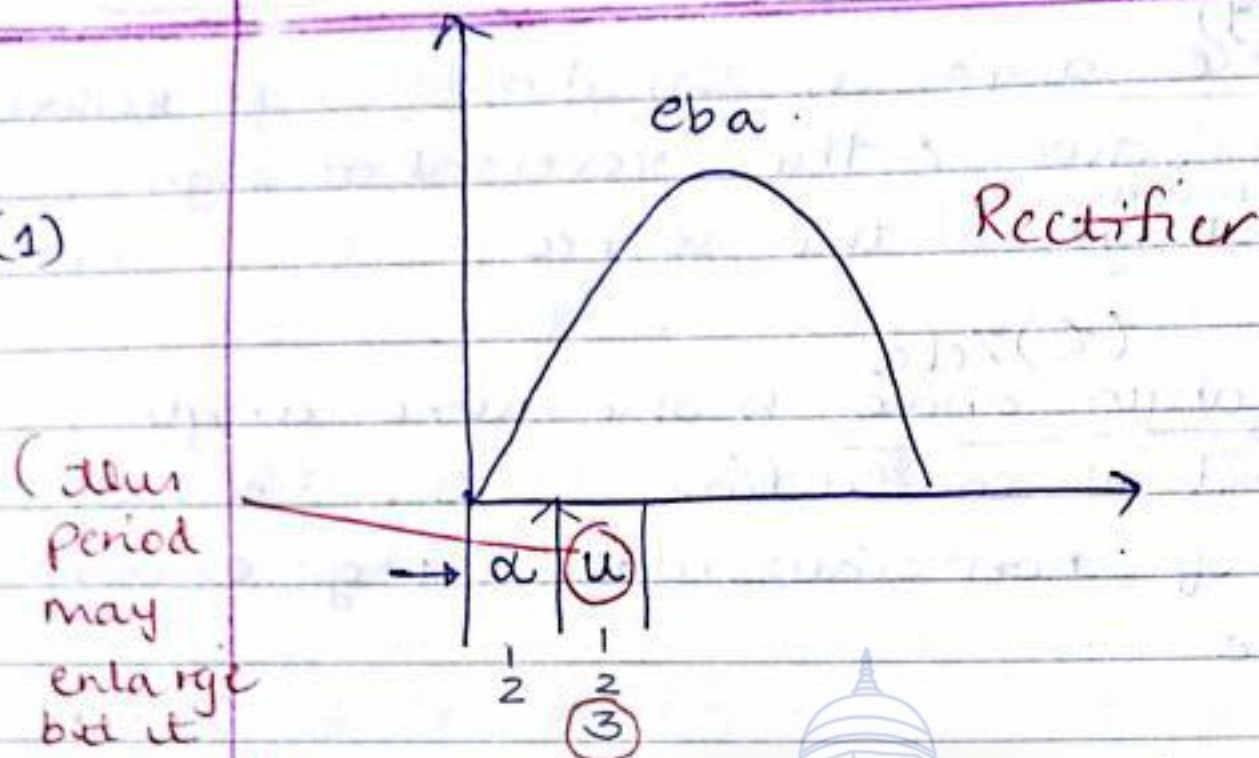 eba.
(1)
Rectifier
(this
period
may
enlarge
but it
α u
1 1
2 2
3